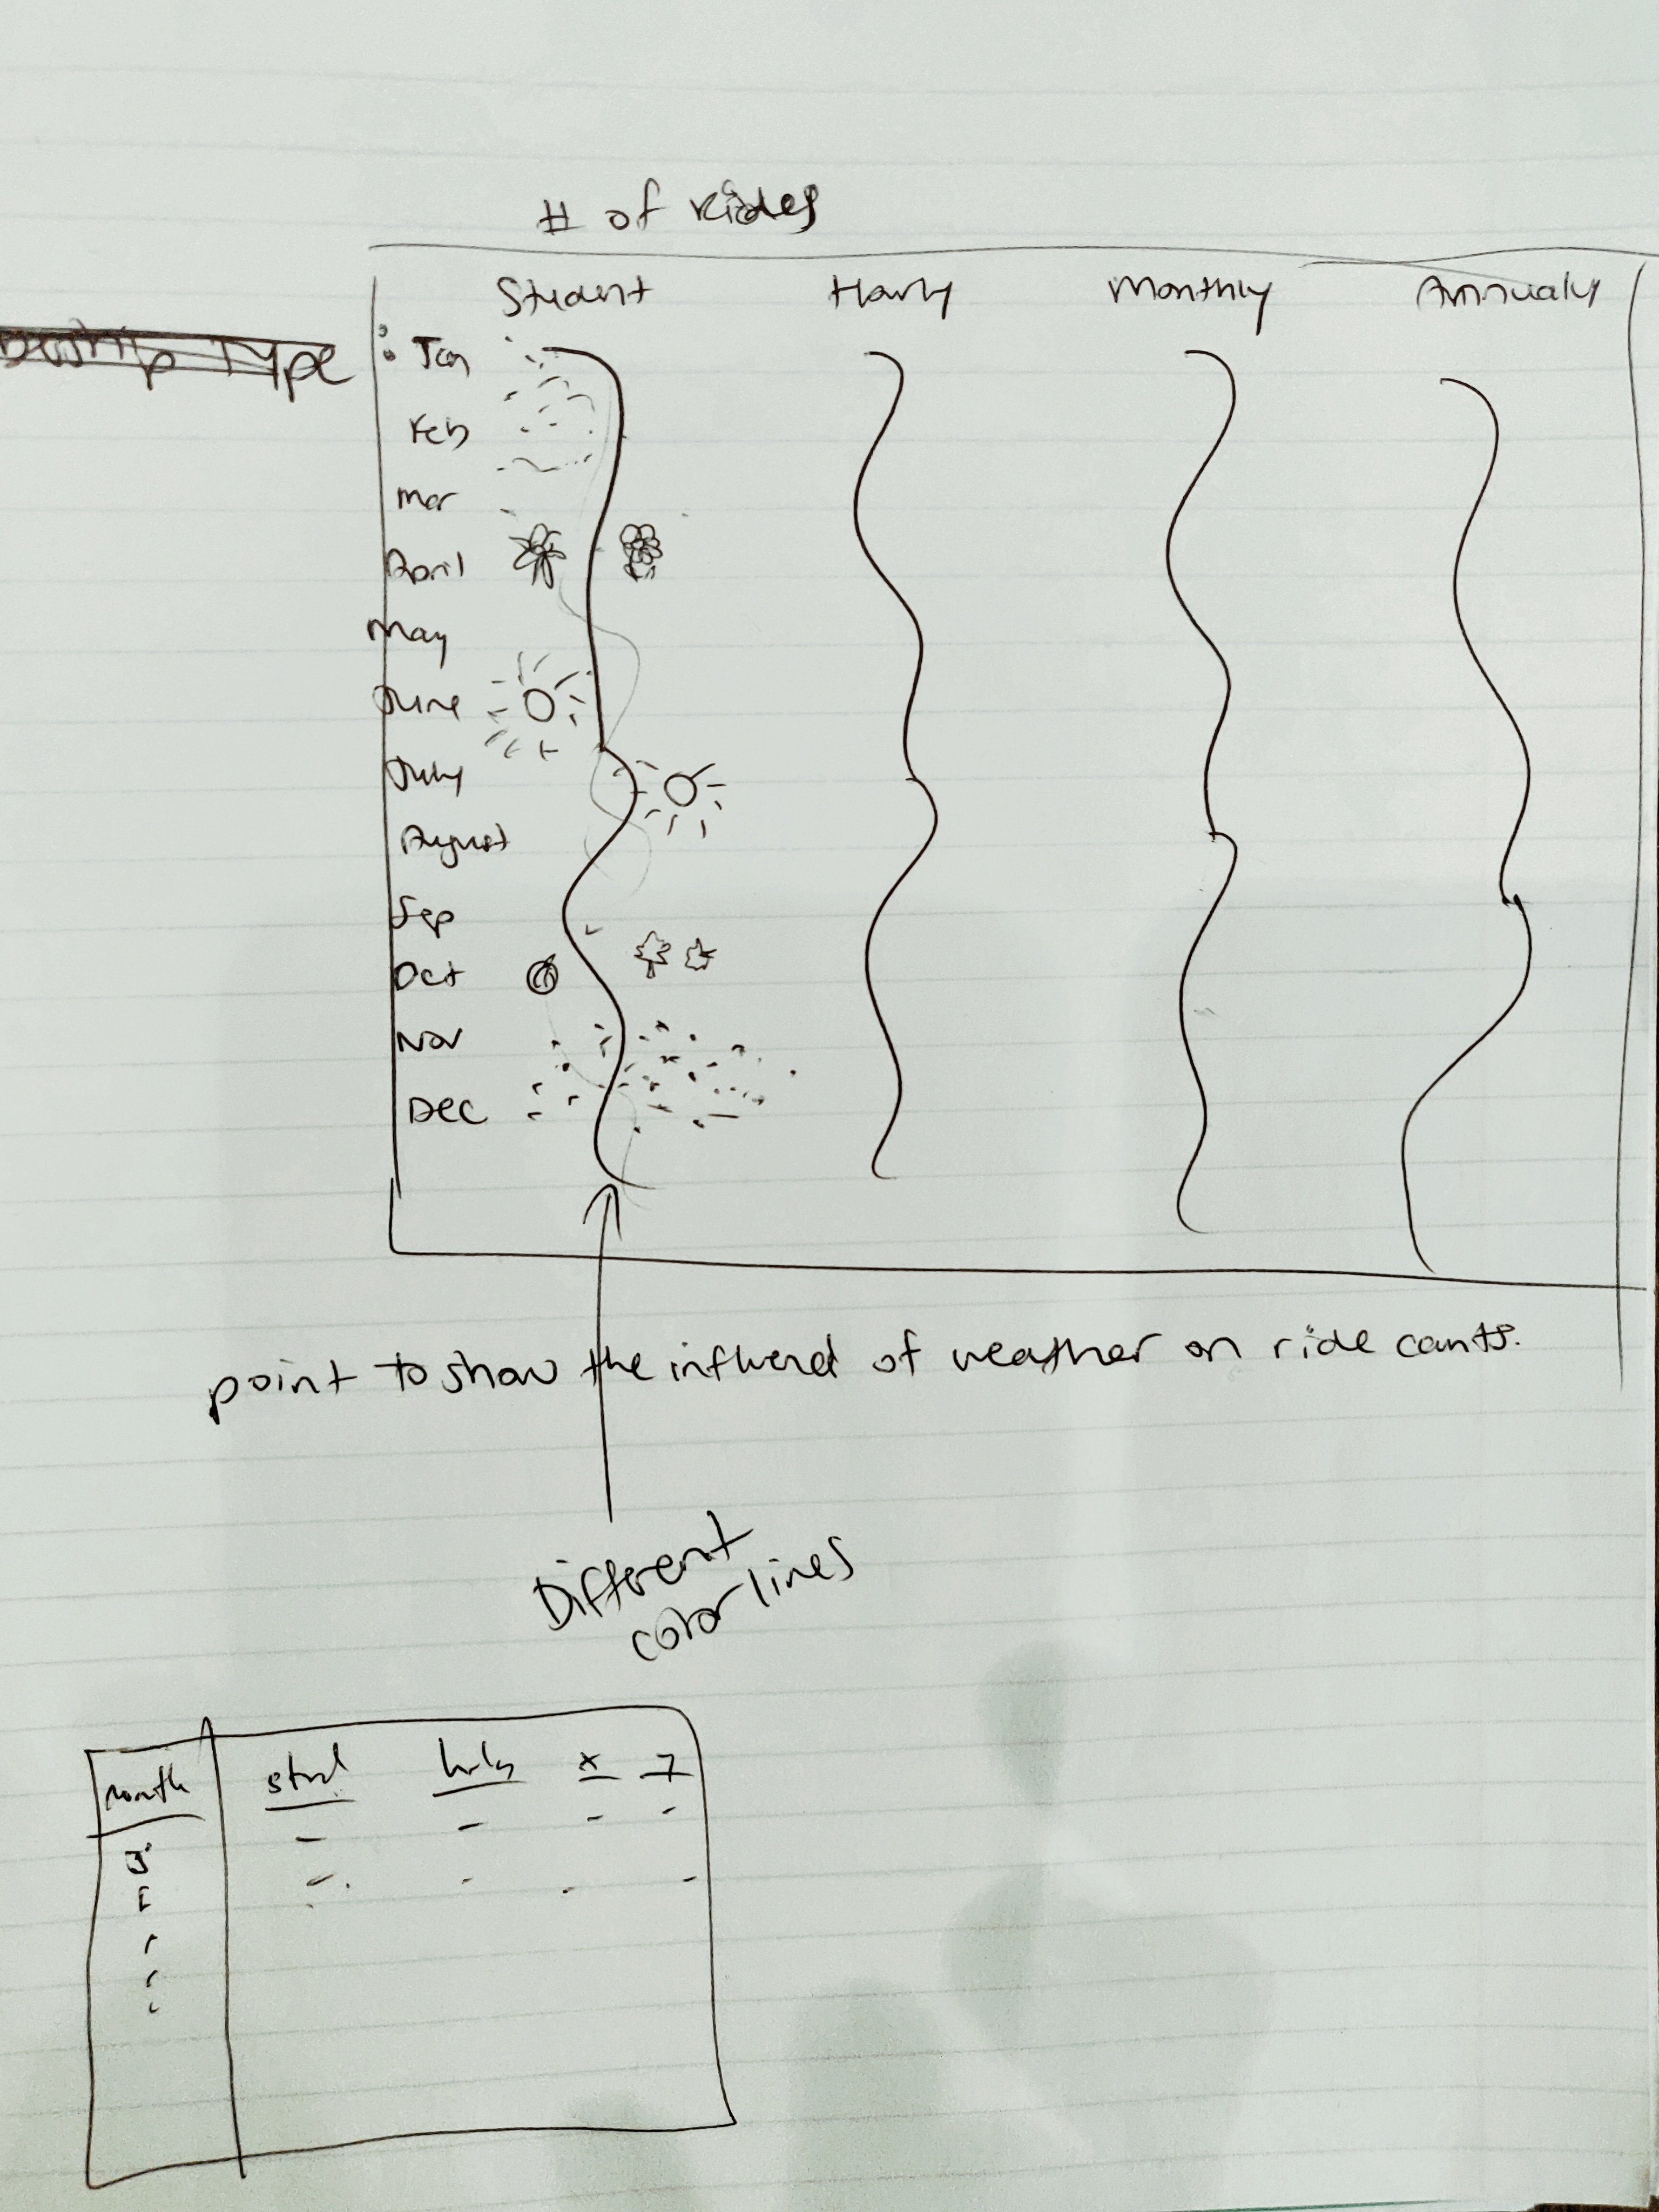 # of rides
Student Hourly Monthly Annualy
Type
Jan
Feb
Mar
April
May
June
July
August
Sep
Oct
Nov
Dec
point to show the influend of weather on ride counts.
Different
color lines
month stud hrly x 7
J